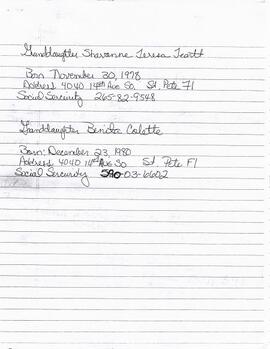 Granddaughter Shavanne Teresa
Born November 30, 1978
Address 4040 14th Ave So. St. Pete Fl
Social Sercurity 265-82-9548
Granddaughter
Born: December 23, 1980
Address 4040 14th Ave So St. Pete Fl
Social Sercurity 590-03-6602